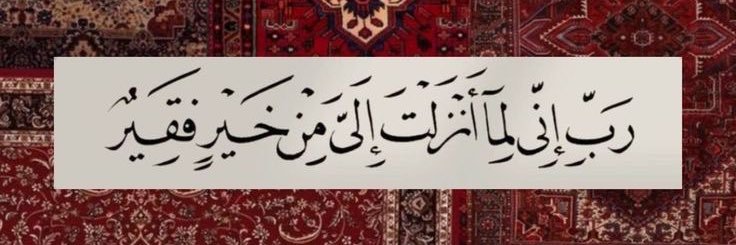 رَبِّ إِنِّي لِمَآ أَنْزَلْتَ إِلَيَّ مِنْ خَيْرٍ فَقِيرٌ